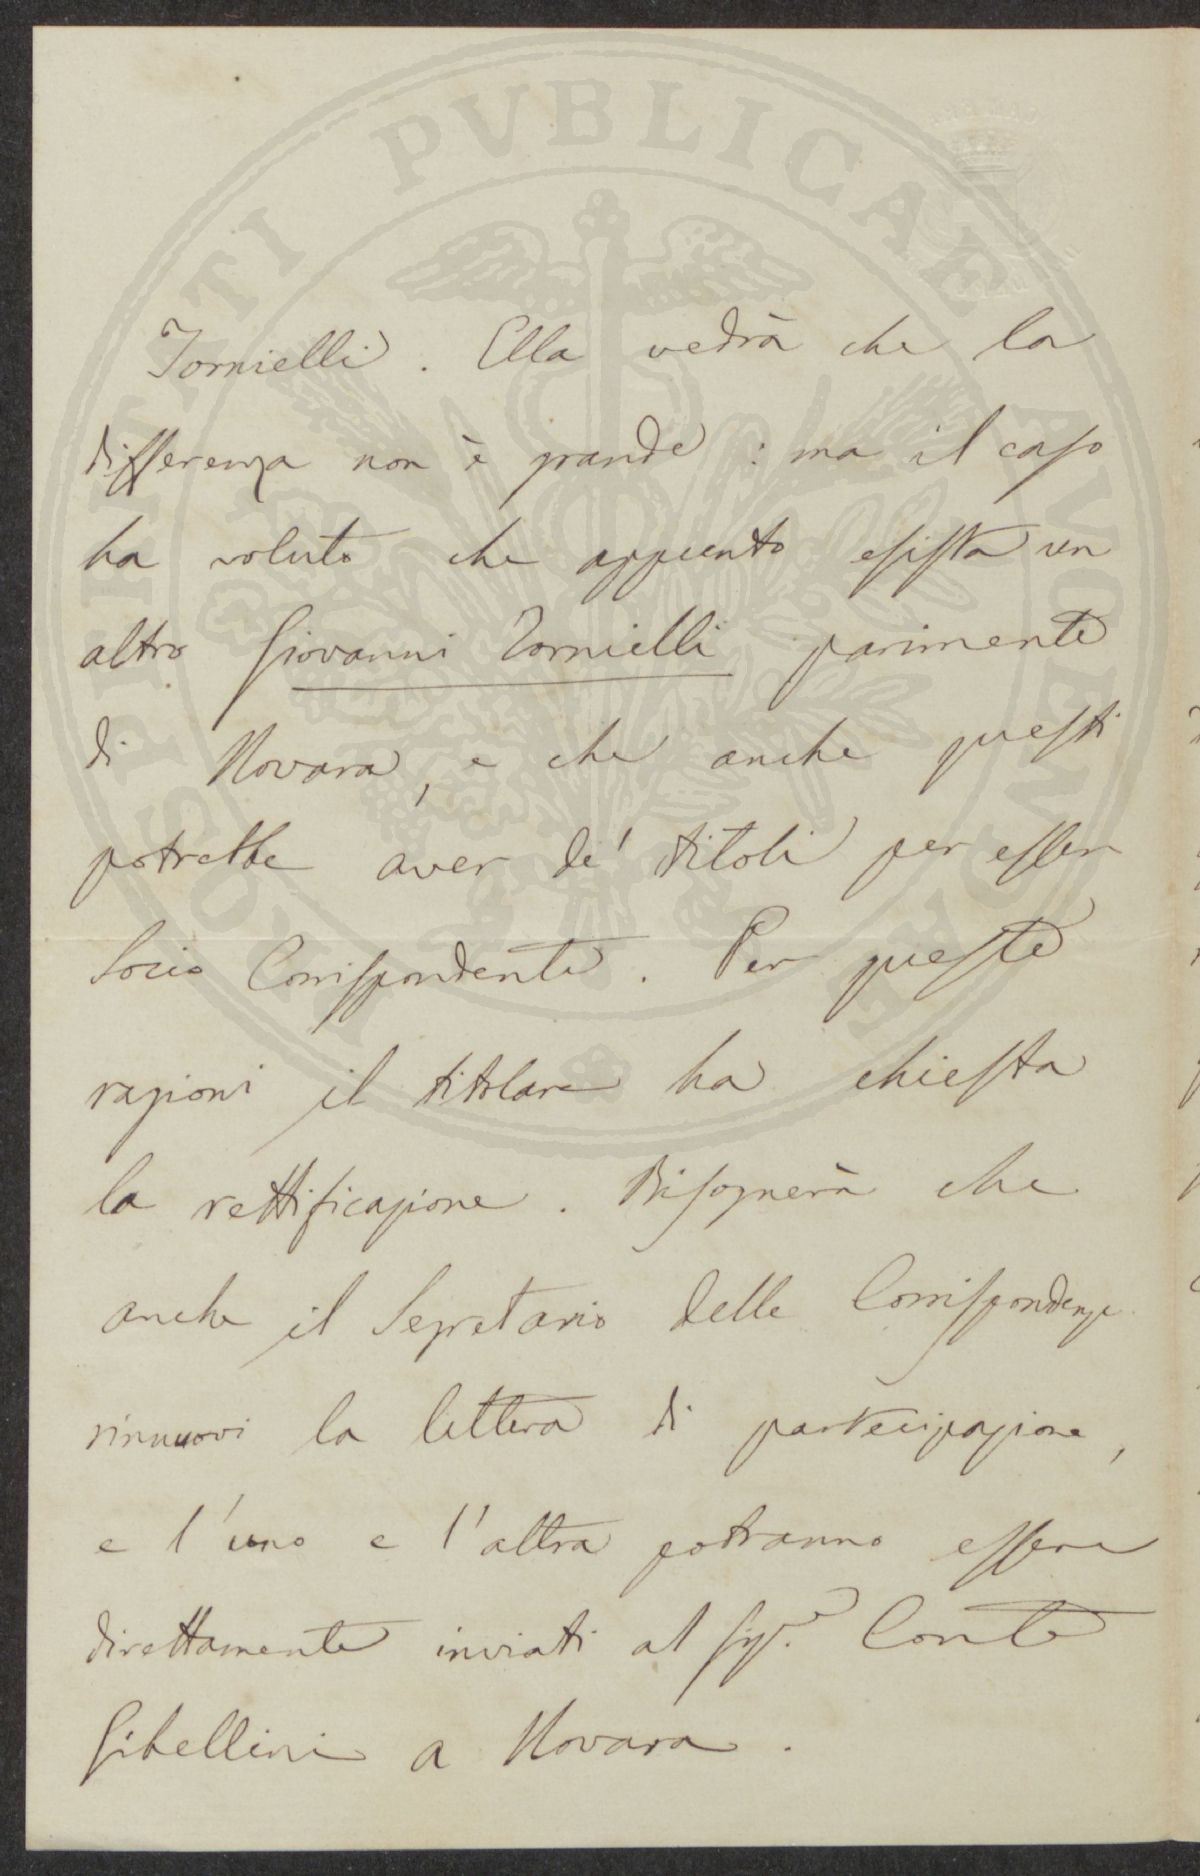 PROSPERITATI PVBLICAE AVGENDAE
Tornielli. Ella vedrà che la
differenza non è grande: ma il caso
ha voluto che appunto esista un
altro Giovanni Tornielli parimente
di Novara, e che anche questi
potrebbe aver de' titoli per esser
Socio Corrispondente. Per queste
ragioni il titolare ha chiesta
la rettificazione. Bisognerà che
anche il Segretario delle Corrispondenze
rinnuovi la lettera di partecipazione,
e l'uno e l'altra potranno essere
direttamente inviati al Sig.e Conte
Gibellini a Novara.